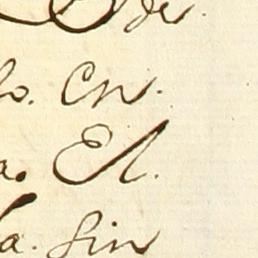 de.
lo. Cn.
a. El.
la. sin